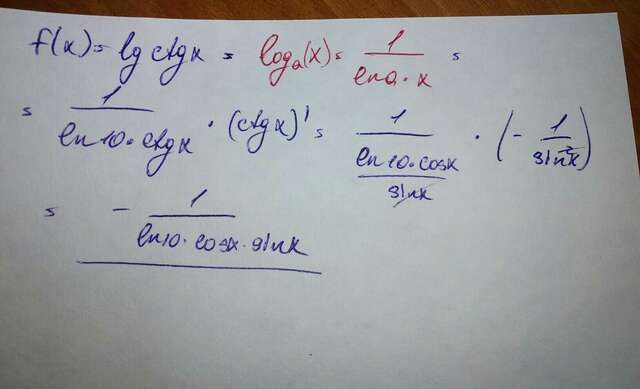 f(x) = lg ctgx = logₐ(x) = 1/(lna·x) =
= 1/(ln10·ctgx) · (ctgx)' = 1/((ln10·cosx)/sinx) · (- 1/sin²x)
= - 1/(ln10·cosx·sinx)